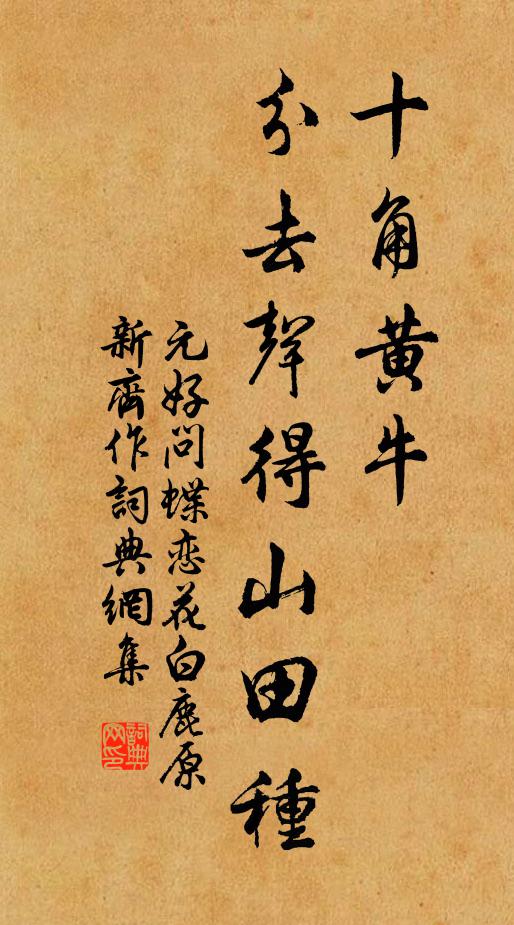 十角黄牛
分去聲得山田種
元好问蝶恋花白鹿原
新齋作詞典網集
詞典網印